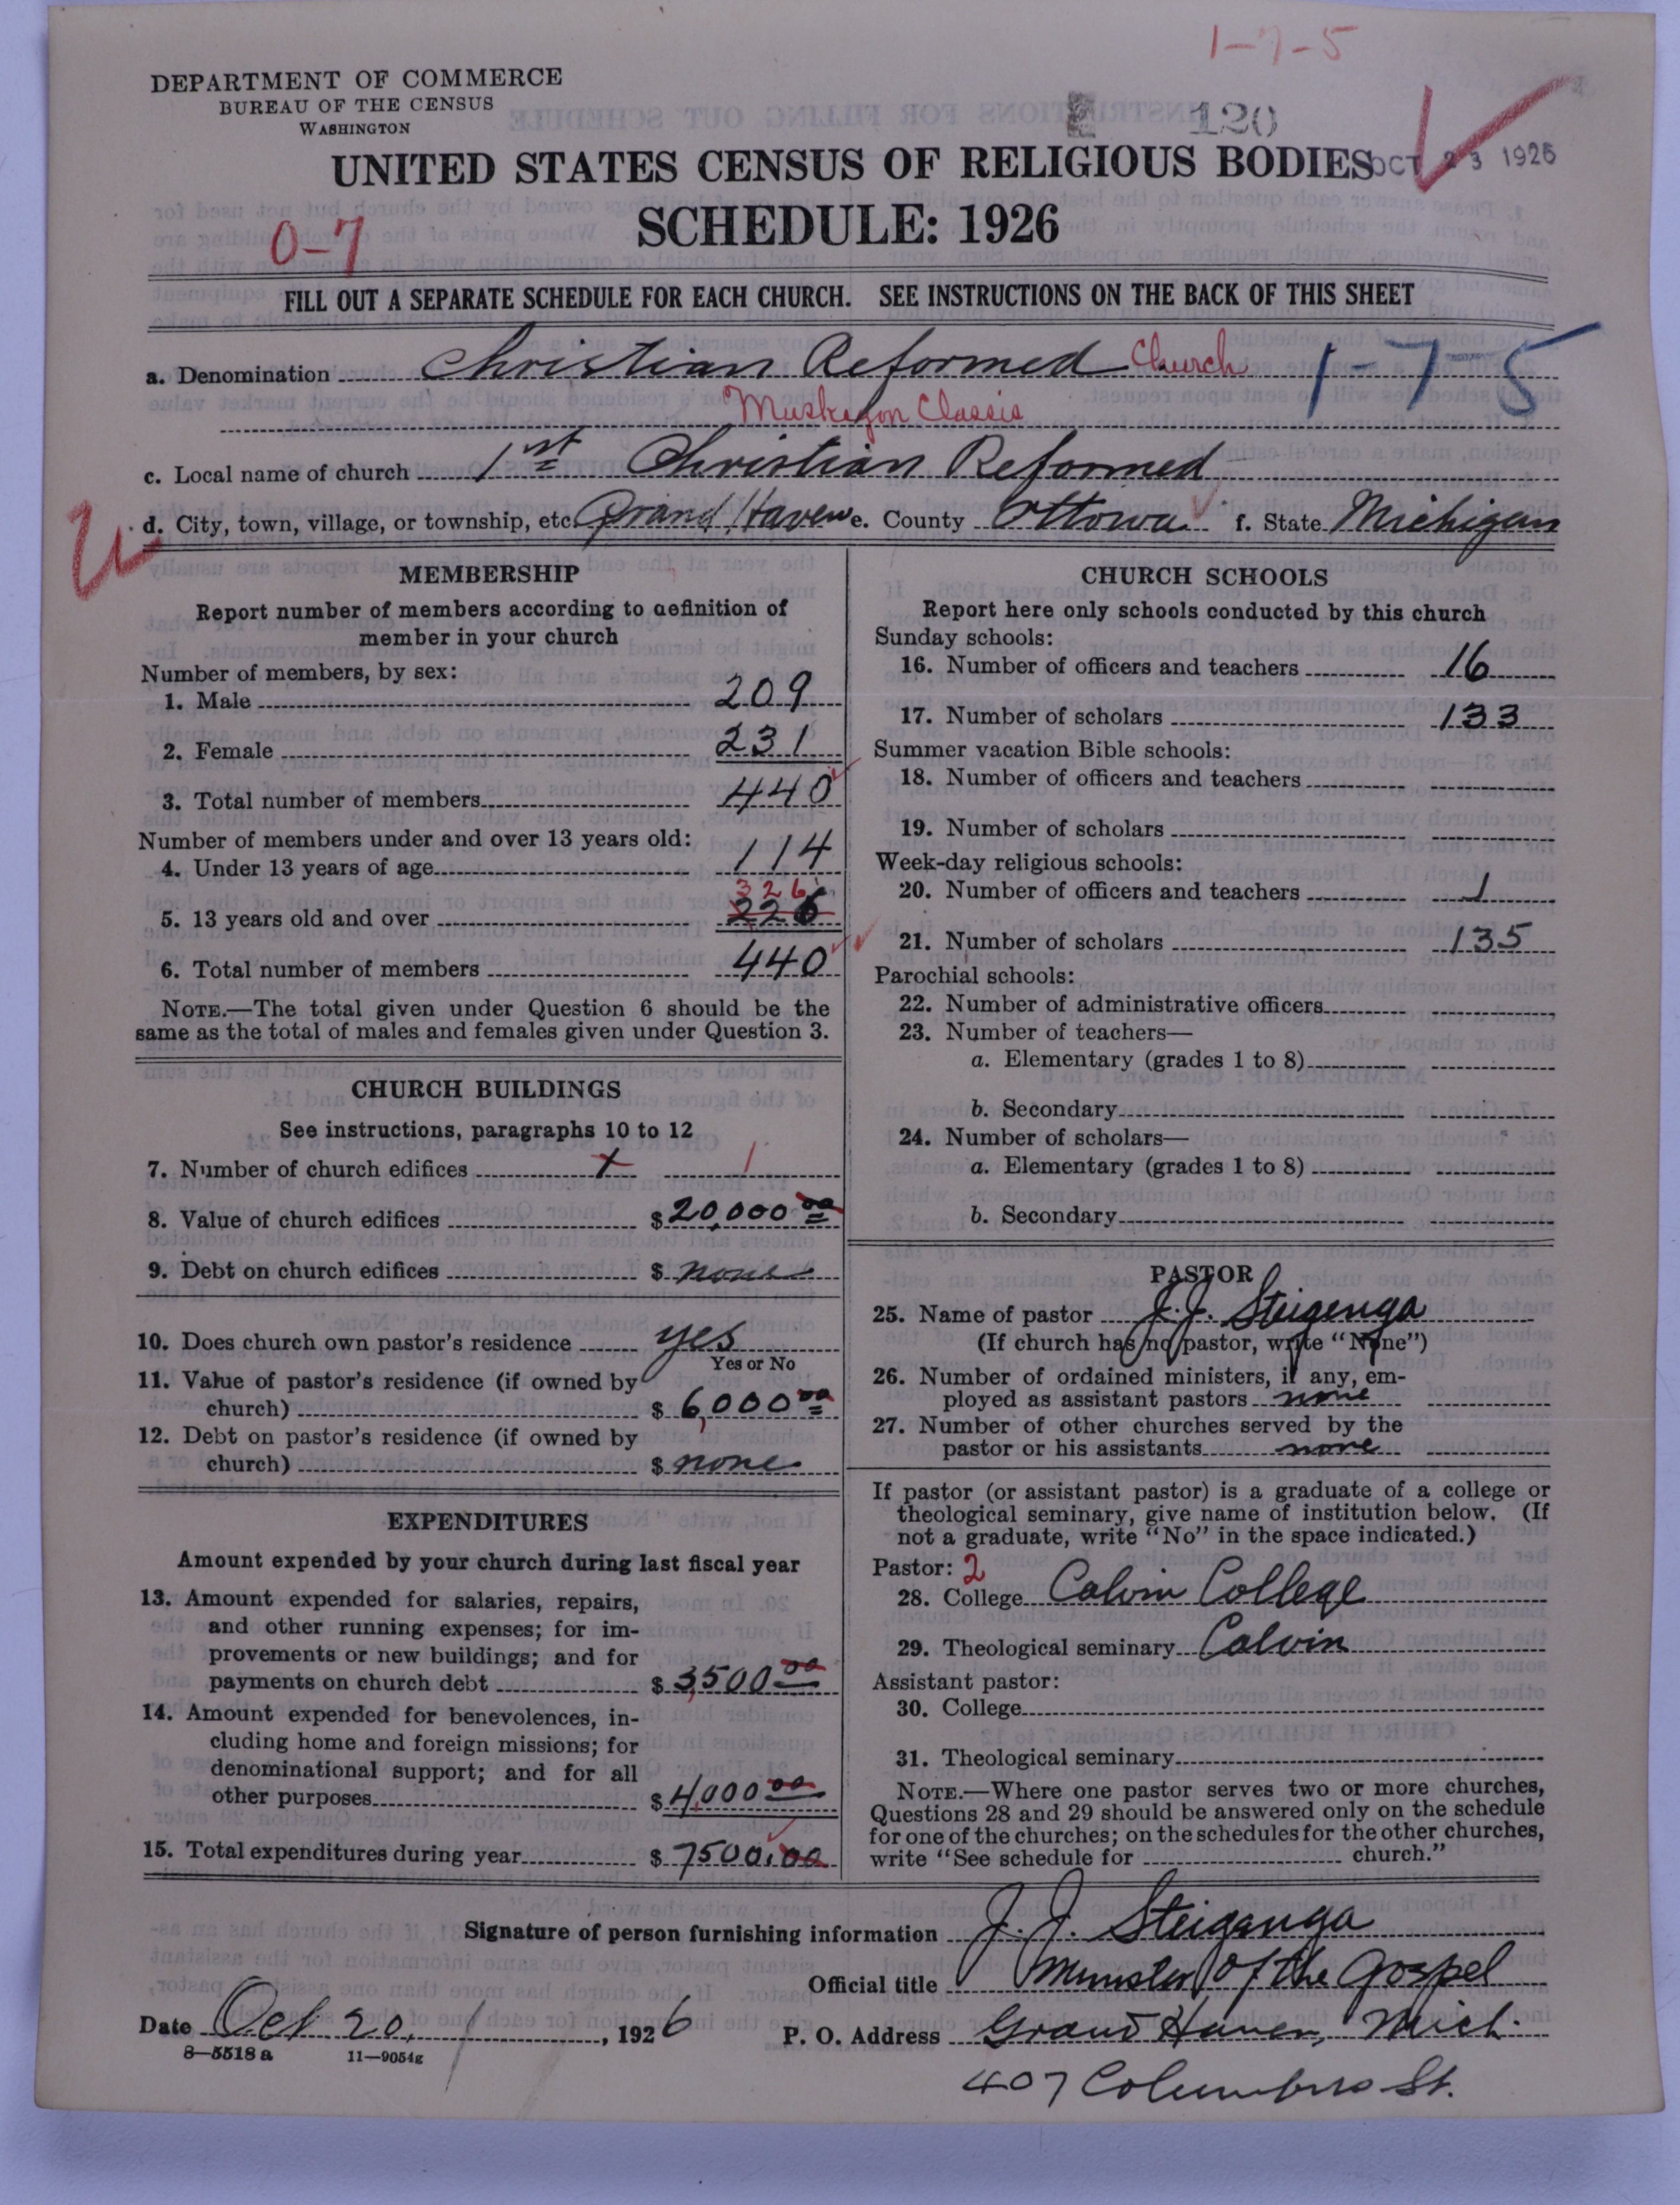 1-7-5
DEPARTMENT OF COMMERCE
BUREAU OF THE CENSUS
WASHINGTON
120
UNITED STATES CENSUS OF RELIGIOUS BODIES
OCT 23 1926
SCHEDULE: 1926
0-7
FILL OUT A SEPARATE SCHEDULE FOR EACH CHURCH. SEE INSTRUCTIONS ON THE BACK OF THIS SHEET
a. Denomination Christian Reformed Church 1-7-5
Muskegon Classis
c. Local name of church 1st Christian Reformed
d. City, town, village, or township, etc. Grand Haven e. County Ottowa f. State Michigan
MEMBERSHIP
Report number of members according to definition of
member in your church
Number of members, by sex:
1. Male 209
2. Female 231
3. Total number of members 440
Number of members under and over 13 years old:
4. Under 13 years of age 114
326
5. 13 years old and over 226
6. Total number of members 440
NOTE.—The total given under Question 6 should be the
same as the total of males and females given under Question 3.
CHURCH BUILDINGS
See instructions, paragraphs 10 to 12
7. Number of church edifices 1 1
8. Value of church edifices $20,000 00
9. Debt on church edifices $ none
10. Does church own pastor's residence yes
Yes or No
11. Value of pastor's residence (if owned by
church) $ 6,000 00
12. Debt on pastor's residence (if owned by
church) $ none
EXPENDITURES
Amount expended by your church during last fiscal year
13. Amount expended for salaries, repairs,
and other running expenses; for im-
provements or new buildings; and for
payments on church debt $ 3,500 00
14. Amount expended for benevolences, in-
cluding home and foreign missions; for
denominational support; and for all
other purposes $ 4,000 00
15. Total expenditures during year $ 7500.00
CHURCH SCHOOLS
Report here only schools conducted by this church
Sunday schools:
16. Number of officers and teachers 16
17. Number of scholars 133
Summer vacation Bible schools:
18. Number of officers and teachers
19. Number of scholars
Week-day religious schools:
20. Number of officers and teachers 1
21. Number of scholars 135
Parochial schools:
22. Number of administrative officers
23. Number of teachers—
a. Elementary (grades 1 to 8)
b. Secondary
24. Number of scholars—
a. Elementary (grades 1 to 8)
b. Secondary
PASTOR
25. Name of pastor J. J. Steigenga
(If church has no pastor, write "None")
26. Number of ordained ministers, if any, em-
ployed as assistant pastors none
27. Number of other churches served by the
pastor or his assistants none
If pastor (or assistant pastor) is a graduate of a college or
theological seminary, give name of institution below. (If
not a graduate, write "No" in the space indicated.)
Pastor: 2
28. College Calvin College
29. Theological seminary Calvin
Assistant pastor:
30. College
31. Theological seminary
NOTE.—Where one pastor serves two or more churches,
Questions 28 and 29 should be answered only on the schedule
for one of the churches; on the schedules for the other churches,
write "See schedule for church."
Signature of person furnishing information J. J. Steigenga
Official title Minister of the Gospel
Date Oct 20, 1926 P. O. Address Grand Haven, Mich.
8—5518 a 11—9054g
407 Columbus St.